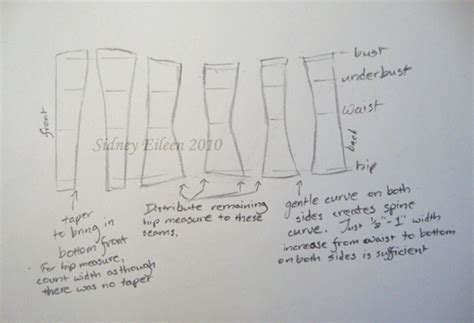 bust
underbust
waist
hip
front
back
Sidney Eileen 2010
taper
to bring in
bottom front
· For hip measure,
count width as though
there was no taper
Distribute remaining
hip measure to these
seams.
gentle curve on both
sides creates spine
curve. Just ½"-1" width
increase from waist to bottom
on both sides is sufficient